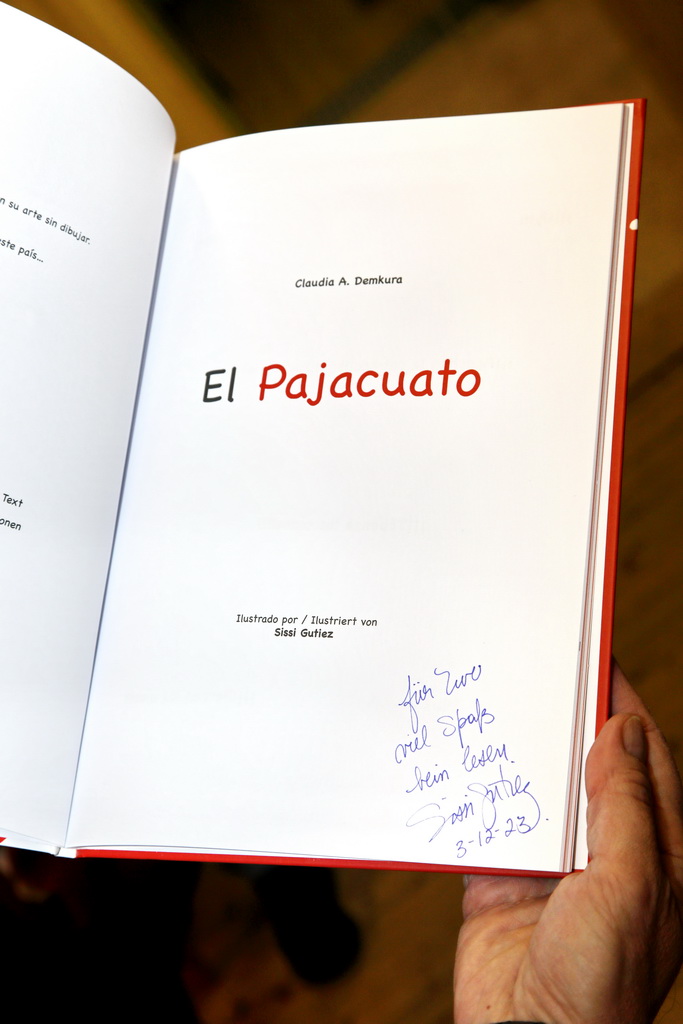 n su arte sin dibujar.
ste país...
Text
onen
Claudia A. Demkura
El Pajacuato
Ilustrado por / Ilustriert von
Sissi Gutiez
für
viel Spaß
bein lesen.
Sissi Gutiez
3-12-23.